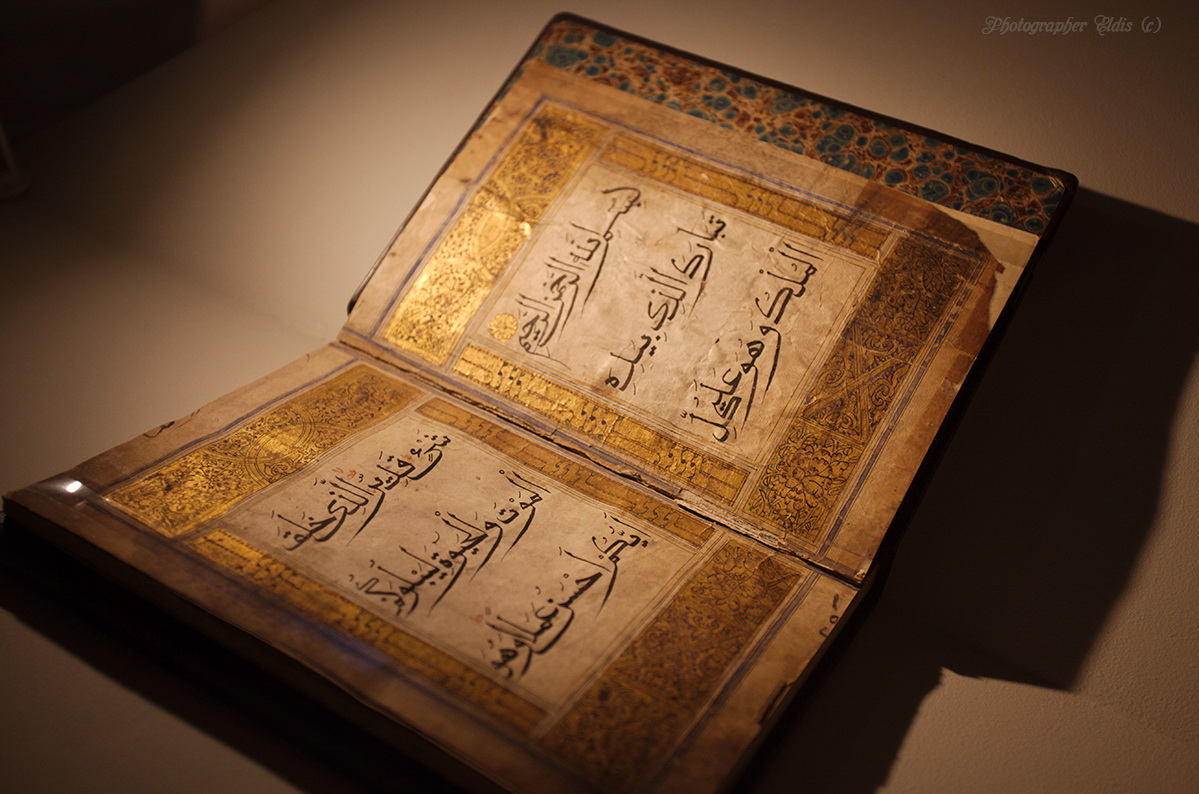 Photographer Eldis (c)
بسم الله الرحمن الرحيم
تبارك الذي بيده
الملك وهو على كل
شيء قدير الذي خلق
الموت والحيوة ليبلوكم
ايكم احسن عملا وهو